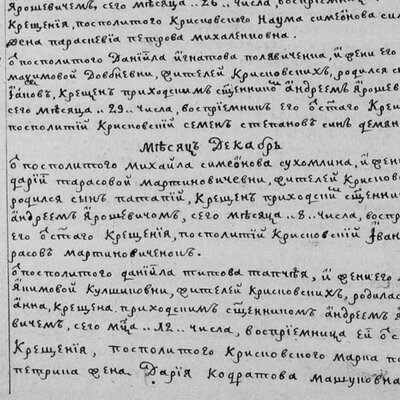 Ярошевичемъ, сего мѣсяца ..26.. числа, воспрїемн
Крещенїя, посполитого Крисковского Наума симеонова си
Жена Параскевїа Петрова михаленковна.
ѿ посполитого Данїила игнатова полявиченка, и жены его
маѯимовой Довбневны, жителей Крисковскихъ, родился с
Їаковъ, Крещенъ приходскимъ сщенникомъ андреемъ Ярошеви
сего мѣсяца ..29.. числа, воспрїемникъ его ѿ стаго Креще
посполитїй Крисковскїй семенъ степановъ синъ демян
Мѣсяцъ Декабрь
ѿ посполитого михаила симеонова сухомлина, и жен
дарїи тарасовой мартиновичевни, жителей Крисковски
родился сынъ патапїй, крещенъ приходскимъ сщенник
андреемъ Ярошевичомъ, сего мѣсяца ..8.. числа, воспр
его ѿ стаго Крещенїя, посполитїй Крисковскїй Їван
расовъ мартиновиченокъ.
ѿ посполитого данїила титова тапчѣя, и жени его
Якимовой Кулшиовни, жителей Крисковскихъ, родилась
анна, крещена приходскимъ сщенникомъ андреемъ Я
вичемъ, сего мца ..12.. числа, воспрїемница ей ѿ с
Крещенїя, посполитого Крисковского марка по
петрика жена Дарїя Кодратова машуковна